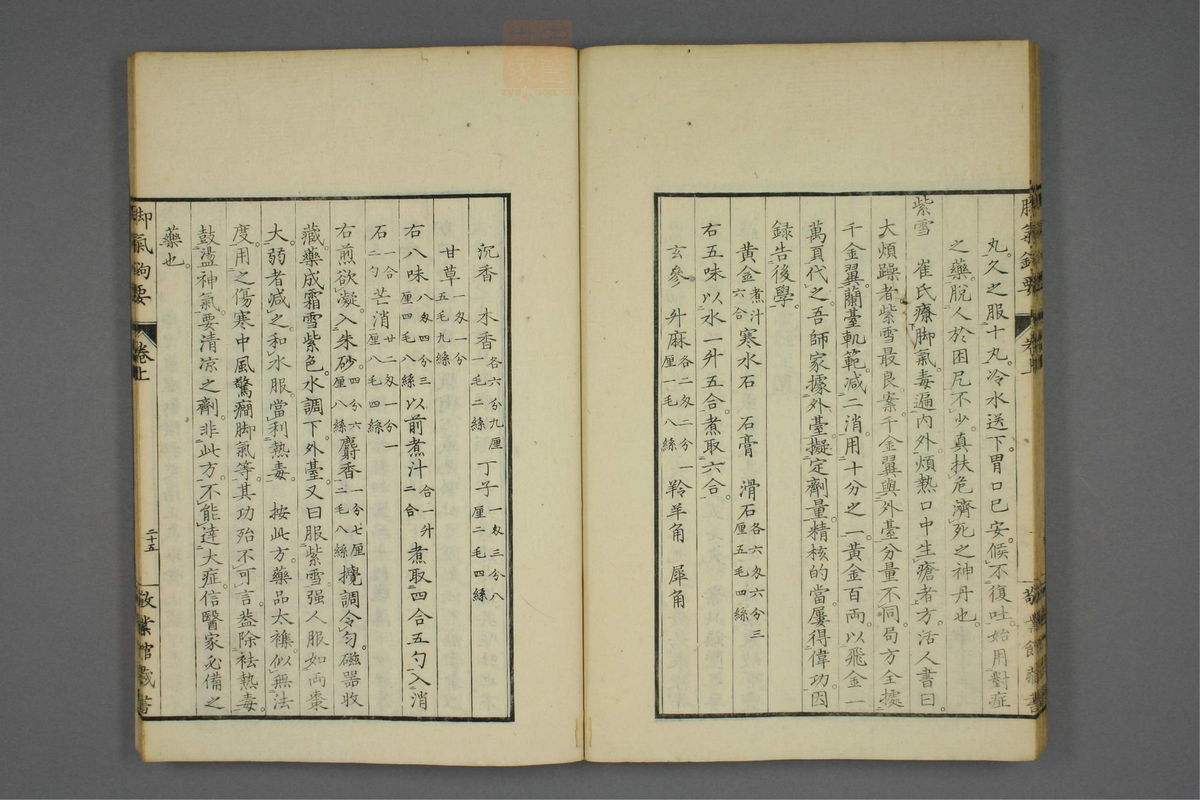 丸久之服十丸冷水送下胃口已安候不復吐始用對症
之藥脫人於困厄不少真扶危濟死之神丹也
紫雪　崔氏療脚氣毒遍內外煩熱口中生瘡者方活人書曰
大煩躁者紫雪最良案千金翼與外臺分量不同局方全據
千金翼蘭臺軌範減二消用十分之一黃金百兩以飛金一
萬頁代之吾師家據外臺擬定劑量精核的當屢得偉功因
録告後學
黃金煮汁六合寒水石　石膏　滑石各六匁六分三厘五毛四絲
玄參　升麻各二匁二分一厘一毛八絲羚羊角　犀角
右五味以水一升五合煮取六合
沉香　木香各六分九厘一毛二絲丁子一匁三分八厘二毛四絲
甘草一匁一分五毛九絲
右八味八匁四分三厘四毛八絲以前煮汁合一升二合煮取四合五勺入消
石一合二勺芒消廿二匁一分一厘八毛四絲
右煎欲凝入朱砂四分六厘八絲麝香一分七厘二毛八絲攪調令勻磁器收
藏藥成霜雪紫色水調下外臺又曰服紫雪强人服如兩棗
大弱者減之和水服當利熱毒　按此方藥品太襍似無法
度用之傷寒中風驚癇脚氣等其功殆不可言葢除袪熱毒
鼓盪神氣要清凉之劑非此方不能達大症信醫家必備之
藥也
脚氣鉤要
卷上
二十五
敬業館藏書